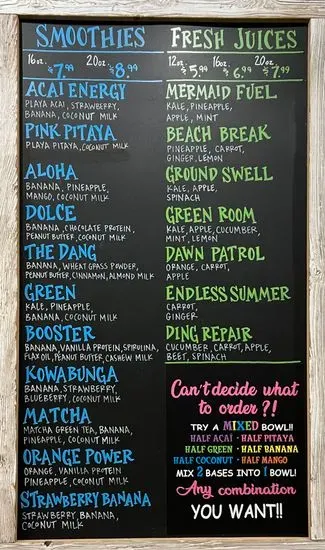 SMOOTHIES
16oz. 20oz.
$7.99 $8.99
ACAI ENERGY
PLAYA ACAI, STRAWBERRY,
BANANA, COCONUT MILK
PINK PITAYA
PLAYA PITAYA, COCONUT MILK
ALOHA
BANANA, PINEAPPLE,
MANGO, COCONUT MILK
DOLCE
BANANA, CHOCOLATE PROTEIN,
PEANUT BUTTER, COCONUT MILK
THE DANG
BANANA, WHEAT GRASS POWDER,
PEANUT BUTTER, CINNAMIN, ALMOND MILK
GREEN
KALE, PINEAPPLE,
BANANA, COCONUT MILK
BOOSTER
BANANA, VANILLA PROTEIN, SPIRULINA,
FLAX OIL, PEANUT BUTTER, CASHEW MILK
KOWABUNGA
BANANA, STRAWBERRY,
BLUEBERRY, COCONUT MILK
MATCHA
MATCHA GREEN TEA, BANANA,
PINEAPPLE, COCONUT MILK
ORANGE POWER
ORANGE, VANILLA PROTEIN
PINEAPPLE, COCONUT MILK
STRAWBERRY BANANA
STRAWBERRY, BANANA,
COCONUT MILK
FRESH JUICES
12oz. 16oz. 20oz.
$5.99 $6.99 $7.99
MERMAID FUEL
KALE, PINEAPPLE,
APPLE, MINT
BEACH BREAK
PINEAPPLE, CARROT,
GINGER, LEMON
GROUND SWELL
KALE, APPLE,
SPINACH
GREEN ROOM
KALE, APPLE, CUCUMBER,
MINT, LEMON
DAWN PATROL
ORANGE, CARROT,
APPLE
ENDLESS SUMMER
CARROT,
GINGER
DING REPAIR
CUCUMBER, CARROT, APPLE,
BEET, SPINACH
Can't decide what
to order?!
TRY A MIXED BOWL!!
HALF ACAI • HALF PITAYA
HALF GREEN • HALF BANANA
HALF COCONUT • HALF MANGO
MIX 2 BASES INTO 1 BOWL!
Any combination
YOU WANT!!